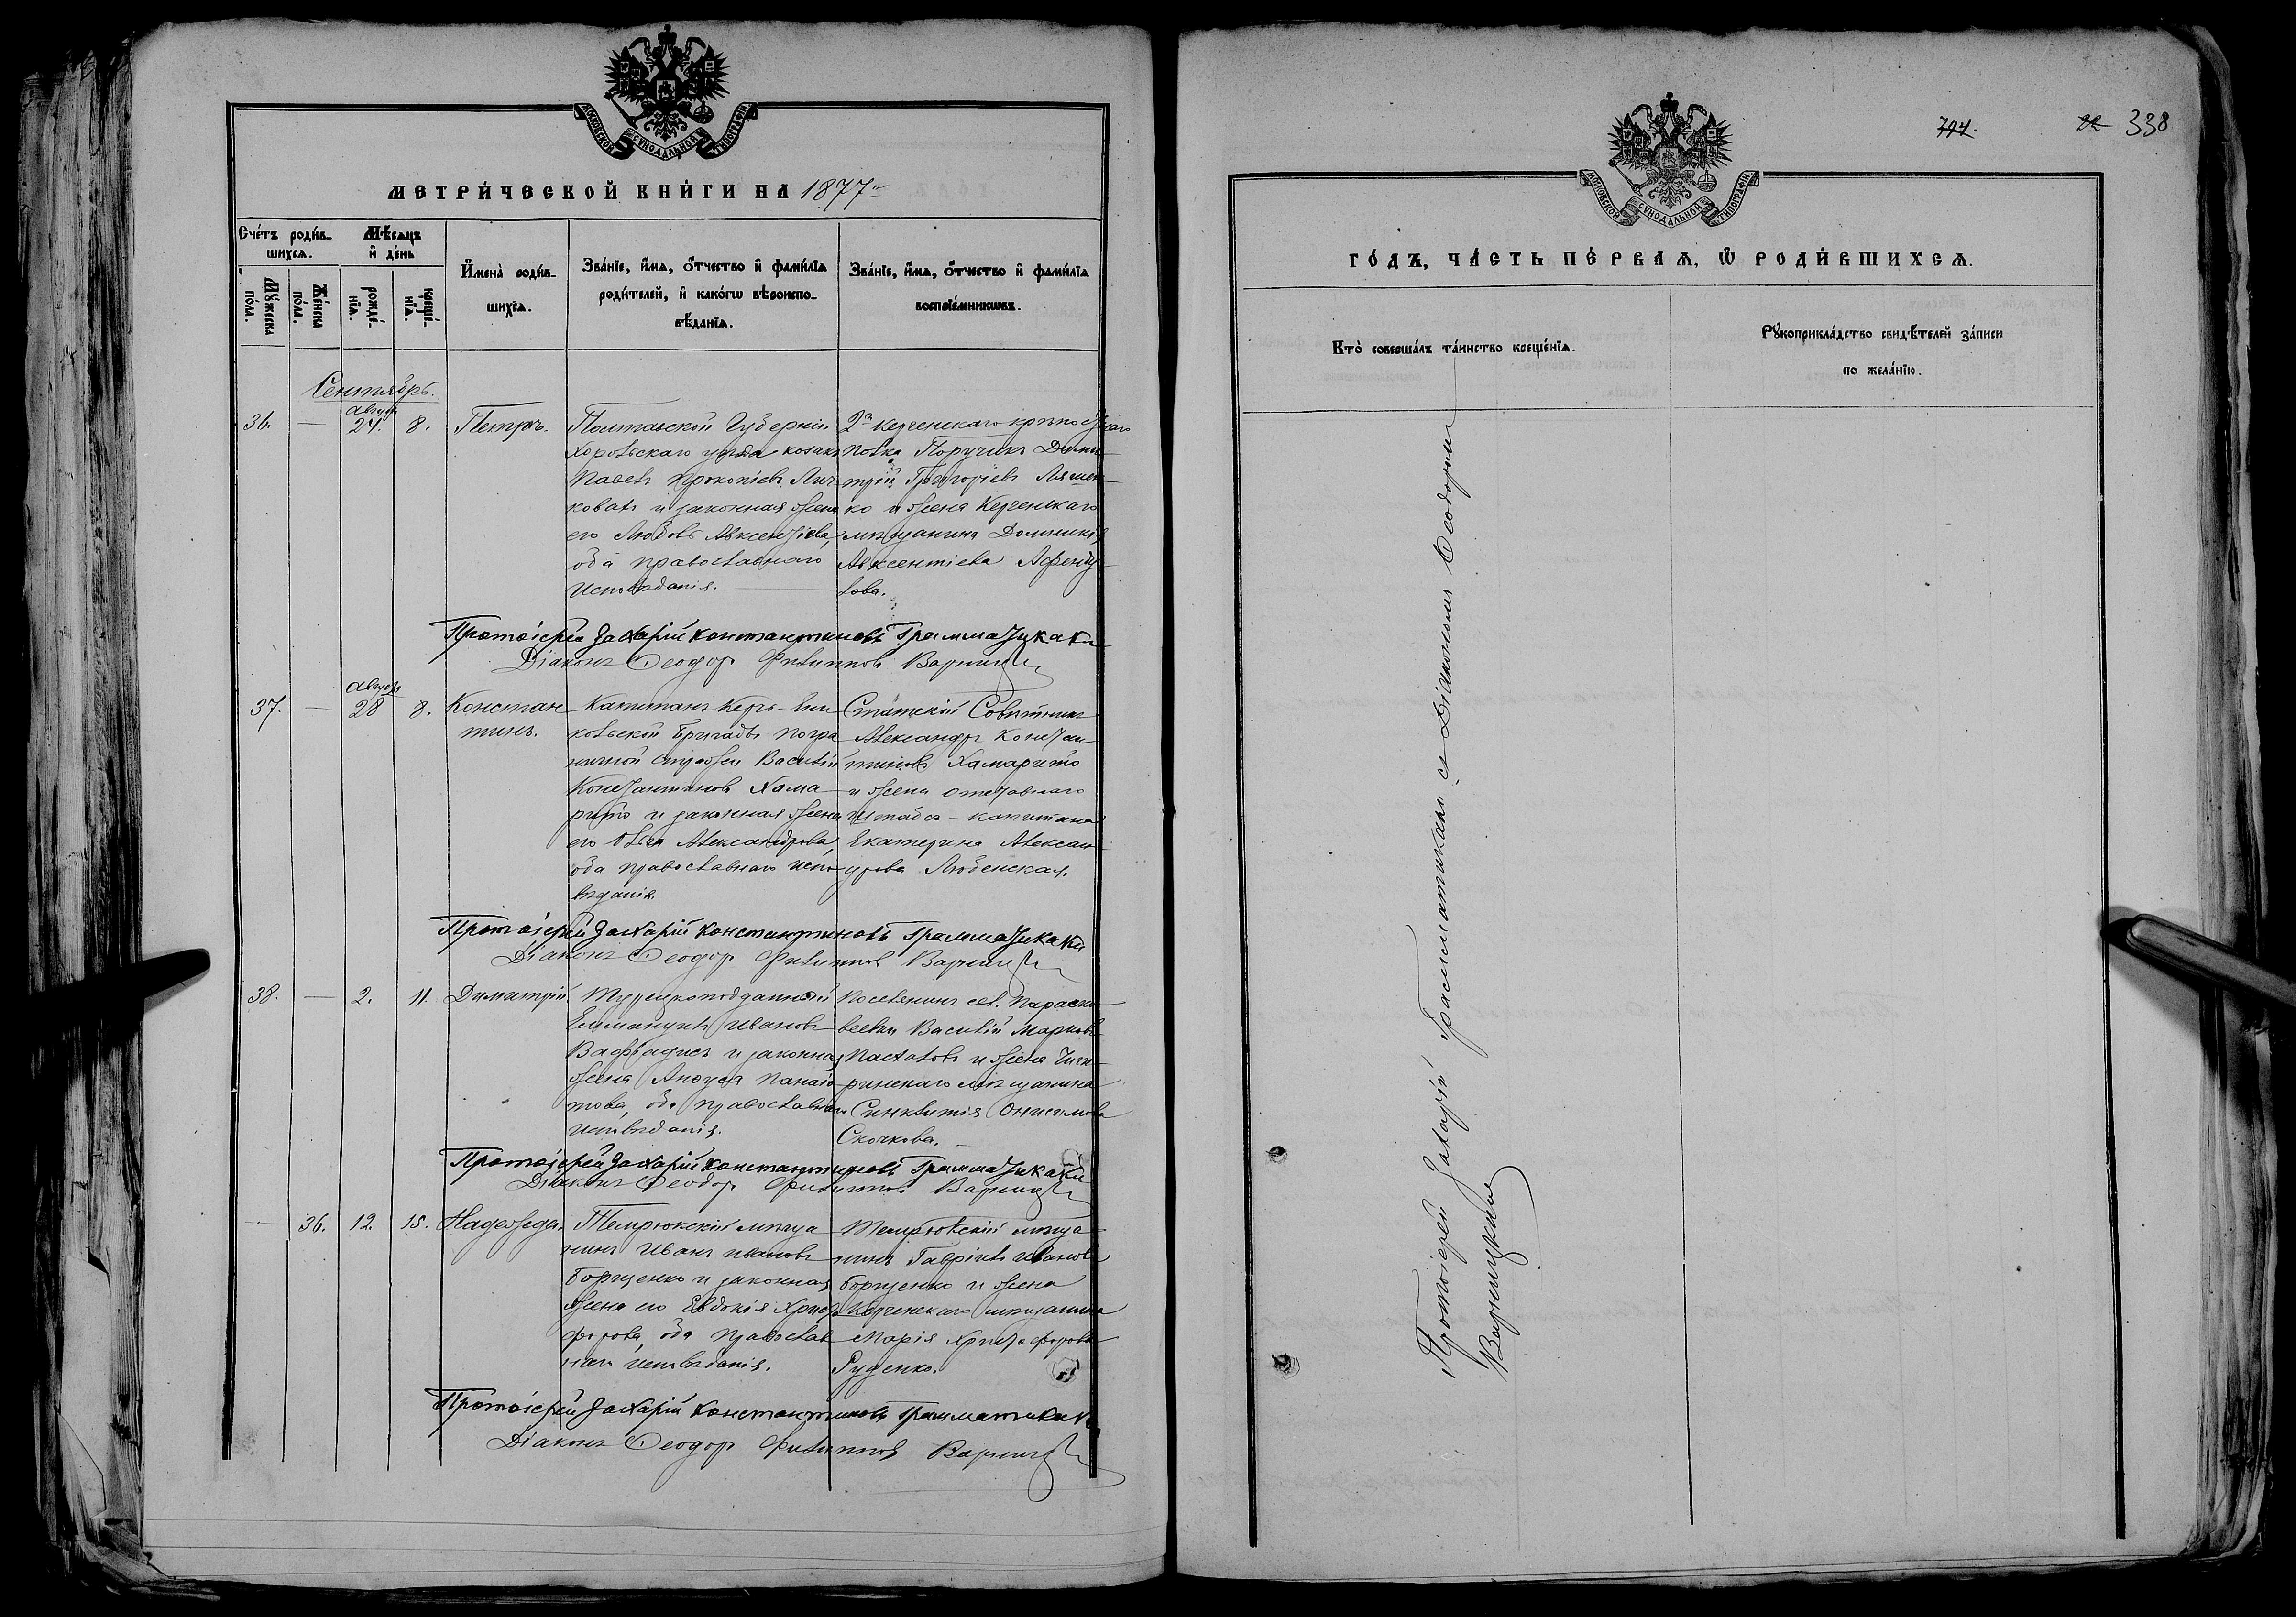 МОСКОВСКОЙ СУНОДАЛЬНОЙ ТИПОГРАФІИ
МЕТРИ́ЧЕСКОЙ КНИ́ГИ НА 1877
Сче́тъ роди́в-
шихсѧ.
Мѣ́сѧцъ
и҆ де́нь
Мꙋ́жеска
по́ла.
Же́нска
по́ла.
рожде́-
нїѧ.
креще́-
нїѧ.
И҆мена̀ роди́в-
шихсѧ.
Зва́нїе, и҆́мѧ, ѻ҆́тчество и҆ фами́лїѧ
роди́телей, и҆ како́гѡ вѣроиспо-
вѣ́данїѧ.
Зва́нїе, и҆́мѧ, ѻ҆́тчество и҆ фами́лїѧ
воспрїе́мникѡвъ.
Сентябрь.
36. — Август 24. 8. Петръ.
Полтавской Губерніи
Хорольскаго уѣзда козакъ
Павелъ Прокопіевъ
и законная жена
его Любовь Авксентіева,
оба православнаго
Исповѣданія.
2го Керченскаго крѣпостнаго
полка Поручикъ Дими-
трій Григоріевъ Ляшен-
ко и жена Керченскаго
мѣщанина
Авксентіева Афенду-
лова.
Протоіерей Захарій Константиновъ Грамматикаки
Діаконъ Ѳеодор Филиппов Варницкій
37. — Августа 28 8. Констан-
тинъ.
Капитанъ Керчь-Ени-
кольской бригады погра-
ничной стражи Василій
Константиновъ Хама-
рито и законная жена
его Ольга Александрова,
оба православнаго испо-
вѣданія.
Статскій Совѣтникъ
Александръ Констан-
тиновъ Хамарито
и жена отставнаго
Штабсъ-капитана
Екатерина Алексан-
дрова Любенская.
Протоіерей Захарій Константиновъ Грамматикаки
Діаконъ Ѳеодор Филиппов Варницкій
38. — 2. 11. Димитрій.
Турецкоподданный
Еммануилъ Ивановъ
Вафіадисъ и законная
жена
това, оба православнаго
исповѣданія.
Поселянинъ сел. Параске-
веевки Василій Марковъ
Пасхаловъ и жена Чиги-
ринскаго мѣщанина
Синклитія Онисимова
Скочкова.
Протоіерей Захарій Константиновъ Грамматикаки
Діаконъ Ѳеодор Филиппов Варницкій
— 36. 12. 15. Надежда.
Темрюкскій мѣща-
нинъ Иванъ Ивановъ
Борщенко и законная
жена его Евдокія Христо-
форова, оба православ-
наго исповѣданія.
Темрюкскій мѣща-
нинъ Гавріилъ Ивановъ
Борщенко и жена
Керченскаго мѣщанина
Марія Христофорова
Руденко.
Протоіерей Захарій Константиновъ Грамматикаки
Діаконъ Ѳеодор Филиппов Варницкій
338
МОСКОВСКОЙ СУНОДАЛЬНОЙ ТИПОГРАФІИ
ГО́ДЪ, ЧА́СТЬ ПЕ́РВАѦ, Ѡ҆ РОДИ́ВШИХСѦ.
Кто̀ соверша́лъ та́инство креще́нїѧ.
Рꙋкоприкла́дство свидѣ́телей за́писи
по жела́нїю.
Протоіерей Захарій Грамматикаки съ Діакономъ Ѳеодоромъ
Варницкимъ